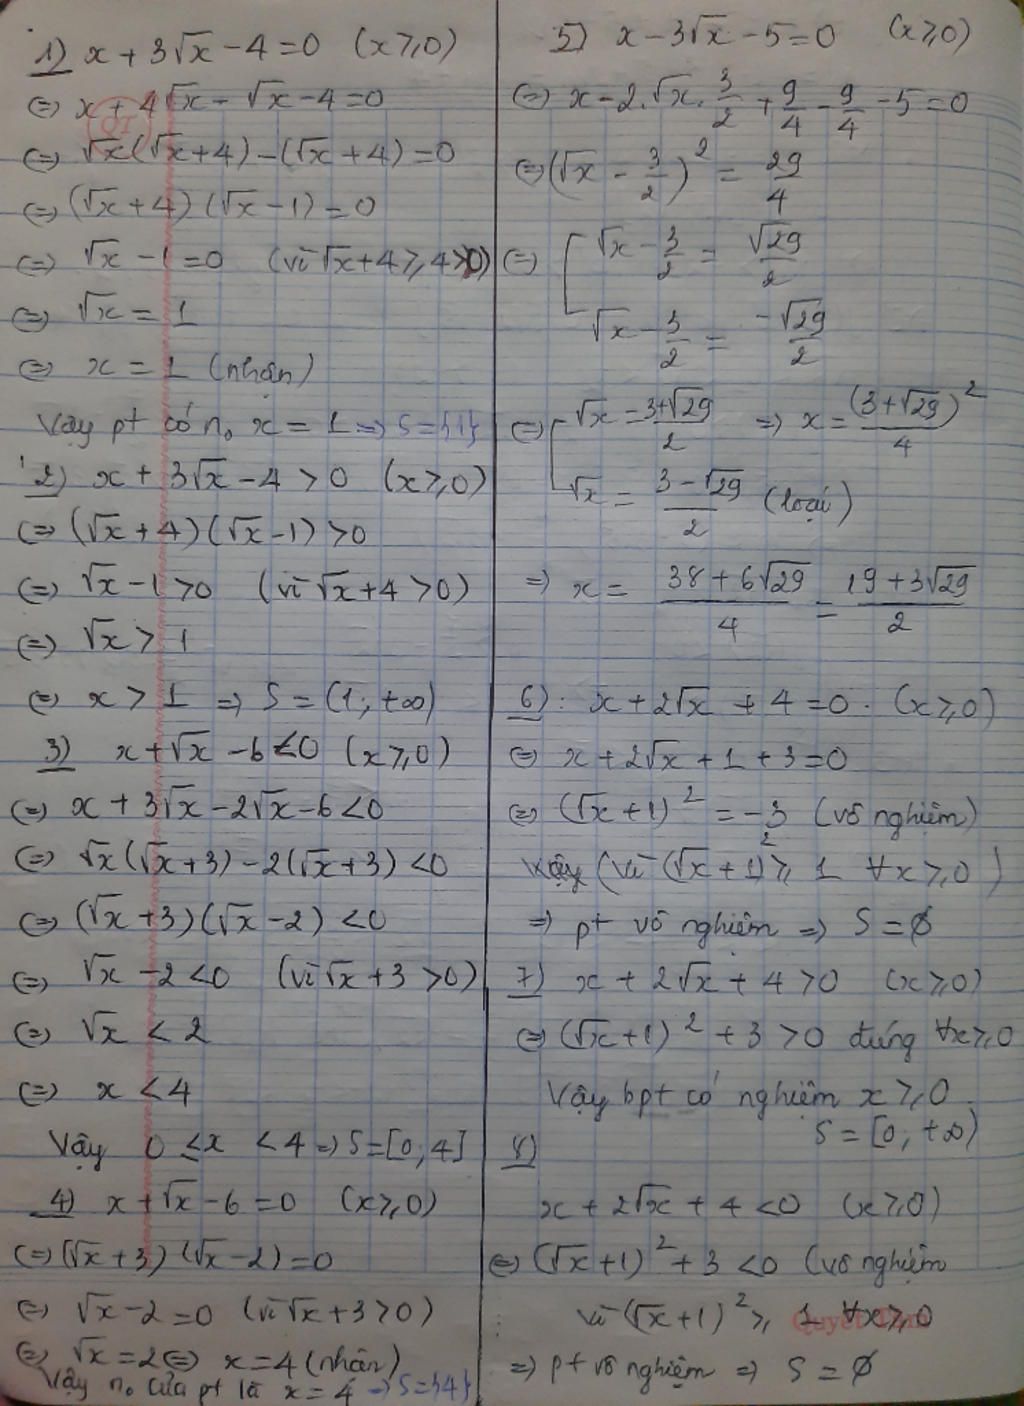 1) x + 3√x - 4 = 0 (x ≥ 0)
⇔ x + 4√x - √x - 4 = 0
⇔ √x(√x + 4) - (√x + 4) = 0
⇔ (√x + 4)(√x - 1) = 0
⇔ √x - 1 = 0 (vì √x + 4 ≥ 4 > 0)
⇔ √x = 1
⇔ x = 1 (nhận)
Vậy pt có n₀ x = 1 ⇒ S = {1}
2) x + 3√x - 4 > 0 (x ≥ 0)
⇔ (√x + 4)(√x - 1) > 0
⇔ √x - 1 > 0 (vì √x + 4 > 0)
⇔ √x > 1
⇔ x > 1 ⇒ S = (1; +∞)
3) x + √x - 6 < 0 (x ≥ 0)
⇔ x + 3√x - 2√x - 6 < 0
⇔ √x(√x + 3) - 2(√x + 3) < 0
⇔ (√x + 3)(√x - 2) < 0
⇔ √x - 2 < 0 (vì √x + 3 > 0)
⇔ √x < 2
⇔ x < 4
Vậy 0 ≤ x < 4 ⇒ S = [0; 4]
4) x + √x - 6 = 0 (x ≥ 0)
⇔ (√x + 3)(√x - 2) = 0
⇔ √x - 2 = 0 (vì √x + 3 > 0)
⇔ √x = 2 ⇔ x = 4 (nhận)
Vậy n₀ của pt là x = 4 ⇒ S = {4}
5) x - 3√x - 5 = 0 (x ≥ 0)
⇔ x - 2.√x.3/2 + 9/4 - 9/4 - 5 = 0
⇔ (√x - 3/2)² = 29/4
⇔ [ √x - 3/2 = √29/2
√x - 3/2 = -√29/2
⇔ [ √x = (3+√29)/2 ⇒ x = (3+√29)²/4
√x = (3-√29)/2 (loại)
⇒ x = (38+6√29)/4 = (19+3√29)/2
6): x + 2√x + 4 = 0. (x ≥ 0)
⇔ x + 2√x + 1 + 3 = 0
⇔ (√x + 1)² = -3 (vô nghiệm)
Vậy (vì (√x + 1)² ≥ 1 ∀x ≥ 0)
⇒ pt vô nghiệm ⇒ S = ∅
7) x + 2√x + 4 > 0 (x ≥ 0)
⇔ (√x + 1)² + 3 > 0 đúng ∀x ≥ 0
Vậy bpt có nghiệm x ≥ 0.
S = [0; +∞)
8)
x + 2√x + 4 < 0 (x ≥ 0)
⇔ (√x + 1)² + 3 < 0 (vô nghiệm
vì (√x + 1)² ≥ 1 ∀x ≥ 0
⇒ pt vô nghiệm ⇒ S = ∅